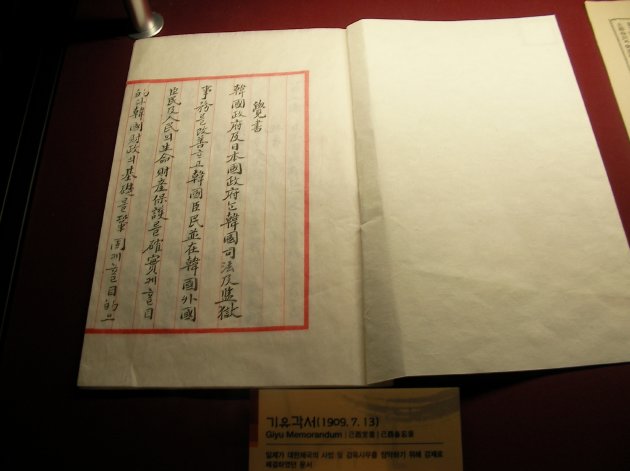 覺書
韓國政府及日本國政府는韓國司法及監獄
事務를改善하고韓國臣民並在韓國外國
臣民及人民의生命財產保護를確實케할目
的과韓國財政의基礎를鞏固케할目的으
기유각서(1909. 7. 13)
Giyu Memorandum | 己酉覚書 | 己酉备忘录
일제가 대한제국의 사법 및 감옥사무를 장악하기 위해 강제로
체결하였던 문서